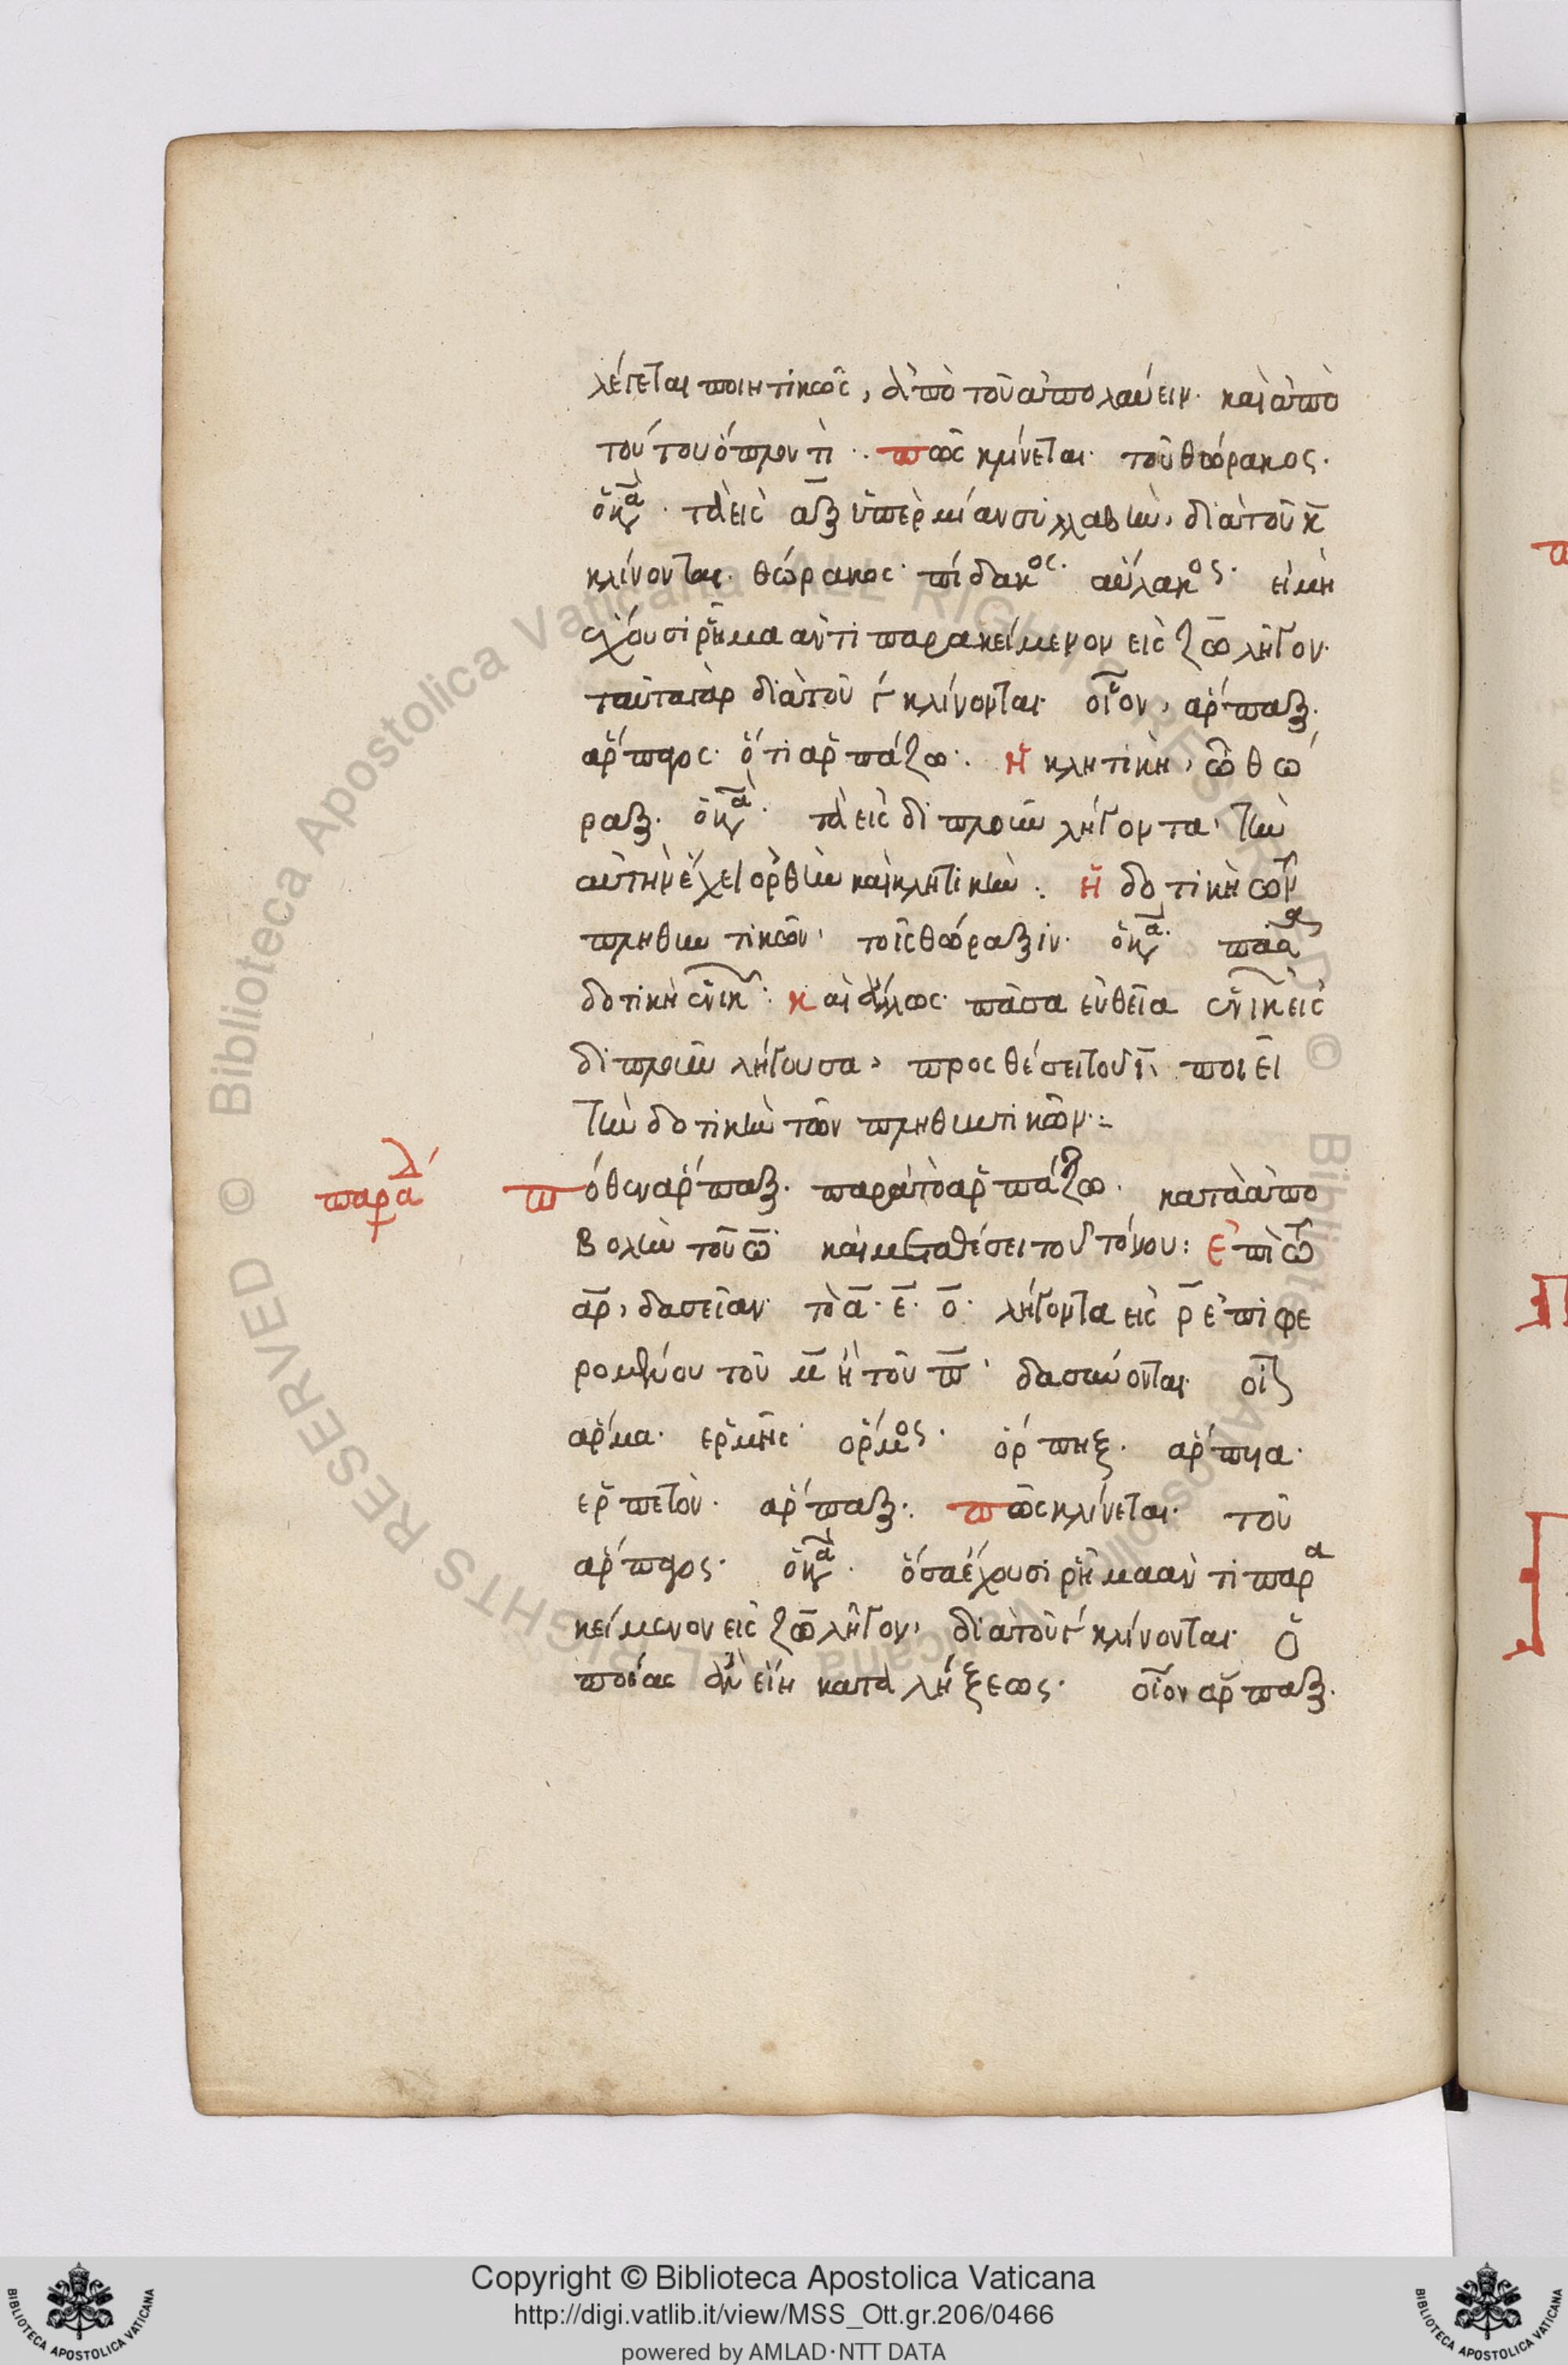 λέγεται ποιητικῶς, ἀπὸ τοῦ ἀπολαύειν· καὶ ἀπὸ
τούτου ὅπλόν τι·. πῶς κλίνεται· τοῦ θώρακος·
ὁ κα· τὰ εἰς ᾱξ ὑπὲρ μίαν συλλαβὴν, διὰ τοῦ κ̄
κλίνονται· θώρακος· πίδακος· αὔλακος· εἰ μὴ
ἔχουσι ῥῆμα ἀντιπαρακείμενον εἰς ζω̄ λῆγον·
ταῦτα γὰρ διὰ τοῦ γ κλίνονται· οἷον, ἅρπαξ·
ἅρπαγος· ὅτι ἁρπάζω·. Ἡ κλητικὴ, ὦ θώ
ραξ· ὁ κα· τὰ εἰς διπλοῦν λήγοντα, τὴν
αὐτὴν ἔχει ὀρθὴν καὶ κλητικήν:. ἡ δοτικὴ τῶν
πληθυντικῶν, τοῖς θώραξιν· ὁ κα· πᾶσα
δοτικὴ ἑνικ: καὶ ἄλλως· πᾶσα εὐθεῖα ἑνικ εἰς
διπλοῦν λήγουσα, προσθέσει τοῦ ῑ, ποιεῖ
τὴν δοτικὴν τῶν πληθυντικῶν:
παρα λ´
πόθεν ἅρπαξ· παρὰ τὸ ἁρπάζω· κατὰ ἀπο
βολὴν τοῦ ω̄ καὶ μεταθέσει τοῦ τόνου: Ἐπὶ τῶ
ᾱρ, δασεῖαν· τὸ ᾱ· ε̄· ο̄· λήγοντα εἰς ρ̄ ἐπιφε
ρομένου τοῦ μ̄ ἢ τοῦ π̄, δασύνονται· οἷον
ἅρμα· ἑρμῆς· ὅρμος· ὅρπηξ· ἅρπυια·
ἑρπετὸν· ἅρπαξ:. πῶς κλίνεται· τοῦ
ἅρπαγος· ὁ κα· ὅσα ἔχουσι ῥῆμα ἀντιπαρα
κείμενον εἰς ζω̄ λῆγον, διὰ τοῦ γ κλίνονται· ὁ
ποίας ἂν εἴη καταλήξεως· οἷον ἅρπαξ·
Copyright © Biblioteca Apostolica Vaticana
http://digi.vatlib.it/view/MSS_Ott.gr.206/0466
powered by AMLAD·NTT DATA
BIBLIOTECA APOSTOLICA VATICANA
BIBLIOTECA APOSTOLICA VATICANA
© Biblioteca Apostolica Vaticana ALL RIGHTS RESERVED
© Biblioteca Apostolica Vaticana ALL RIGHTS RESERVED